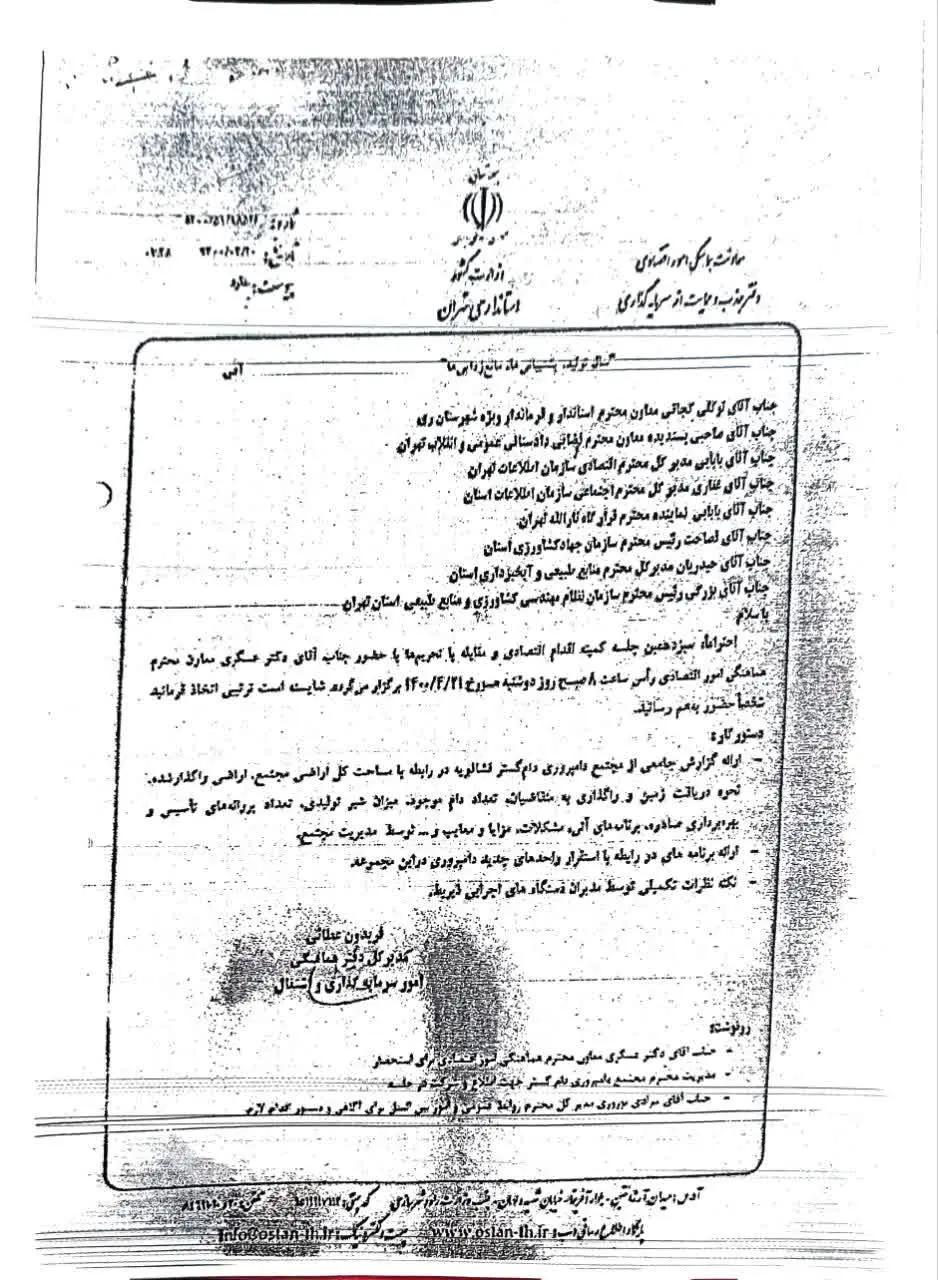 بسمه تعالی
وزارت کشور
استانداری تهران
معاونت هماهنگی امور اقتصادی
دفتر جذب و حمایت از سرمایه گذاری
شماره:
تاریخ: ۰۷:۲۸
پیوست: ندارد
"سال تولید، پشتیبانی ها، مانع زدایی ها"
آنی
جناب آقای توکلی کجانی معاون محترم استاندار و فرماندار ویژه شهرستان ری
جناب آقای صاحبی پسندیده معاون محترم قضایی دادستانی عمومی و انقلاب تهران
جناب آقای بابایی مدیر کل محترم اقتصادی سازمان اطلاعات تهران
جناب آقای غفاری مدیر کل محترم اجتماعی سازمان اطلاعات استان
جناب آقای بابایی نماینده محترم قرارگاه ثارالله تهران
جناب آقای فصاحت رئیس محترم سازمان جهادکشاورزی استان
جناب آقای حیدریان مدیرکل محترم منابع طبیعی و آبخیزداری استان
جناب آقای بزرگی رئیس محترم سازمان نظام مهندسی کشاورزی و منابع طبیعی استان تهران
با سلام
احتراماً، سیزدهمین جلسه کمیته اقدام اقتصادی و مقابله با تحریم‌ها با حضور جناب آقای دکتر عسگری معاون محترم
هماهنگی امور اقتصادی رأس ساعت ۸ صبح روز دوشنبه مورخ ۱۴۰۰/۴/۲۱ برگزار می‌گردد. شایسته است ترتیبی اتخاذ فرمائید
شخصاً حضور بهم رسانید.
دستور کار:
– ارائه گزارش جامعی از مجتمع دامپروری دام‌گستر فشافویه در رابطه با مساحت کل اراضی مجتمع، اراضی واگذارشده،
نحوه دریافت زمین و واگذاری به متقاضیان، تعداد دام موجود، میزان شیر تولیدی، تعداد پروانه‌های تأسیس و
بهره‌برداری صادره، برنامه‌های آتی، مشکلات، مزایا و معایب و... توسط مدیریت مجتمع.
– ارائه برنامه های در رابطه با استقرار واحدهای جدید دامپروری دراین مجموعه.
– نکته نظرات تکمیلی توسط مدیران دستگاه های اجرایی ذیربط.
فریدون عطائی
مدیرکل دفتر هماهنگی
امور سرمایه گذاری و اشتغال
رونوشت:
– جناب آقای دکتر عسگری معاون محترم هماهنگی امور اقتصادی برای استحضار
– مدیریت محترم مجتمع دامپروری دام گستر جهت اطلاع و شرکت در جلسه
– جناب آقای مدیر کل محترم روابط عمومی و امور بین الملل برای آگاهی و دستور اقدام لازم
آدرس: میدان آرژانتین - بلوار آفریقا - خیابان کد پستی: تلفن:
پایگاه اطلاع رسانی وب: www.ostan-th.ir پست الکترونیک: info@ostan-th.ir